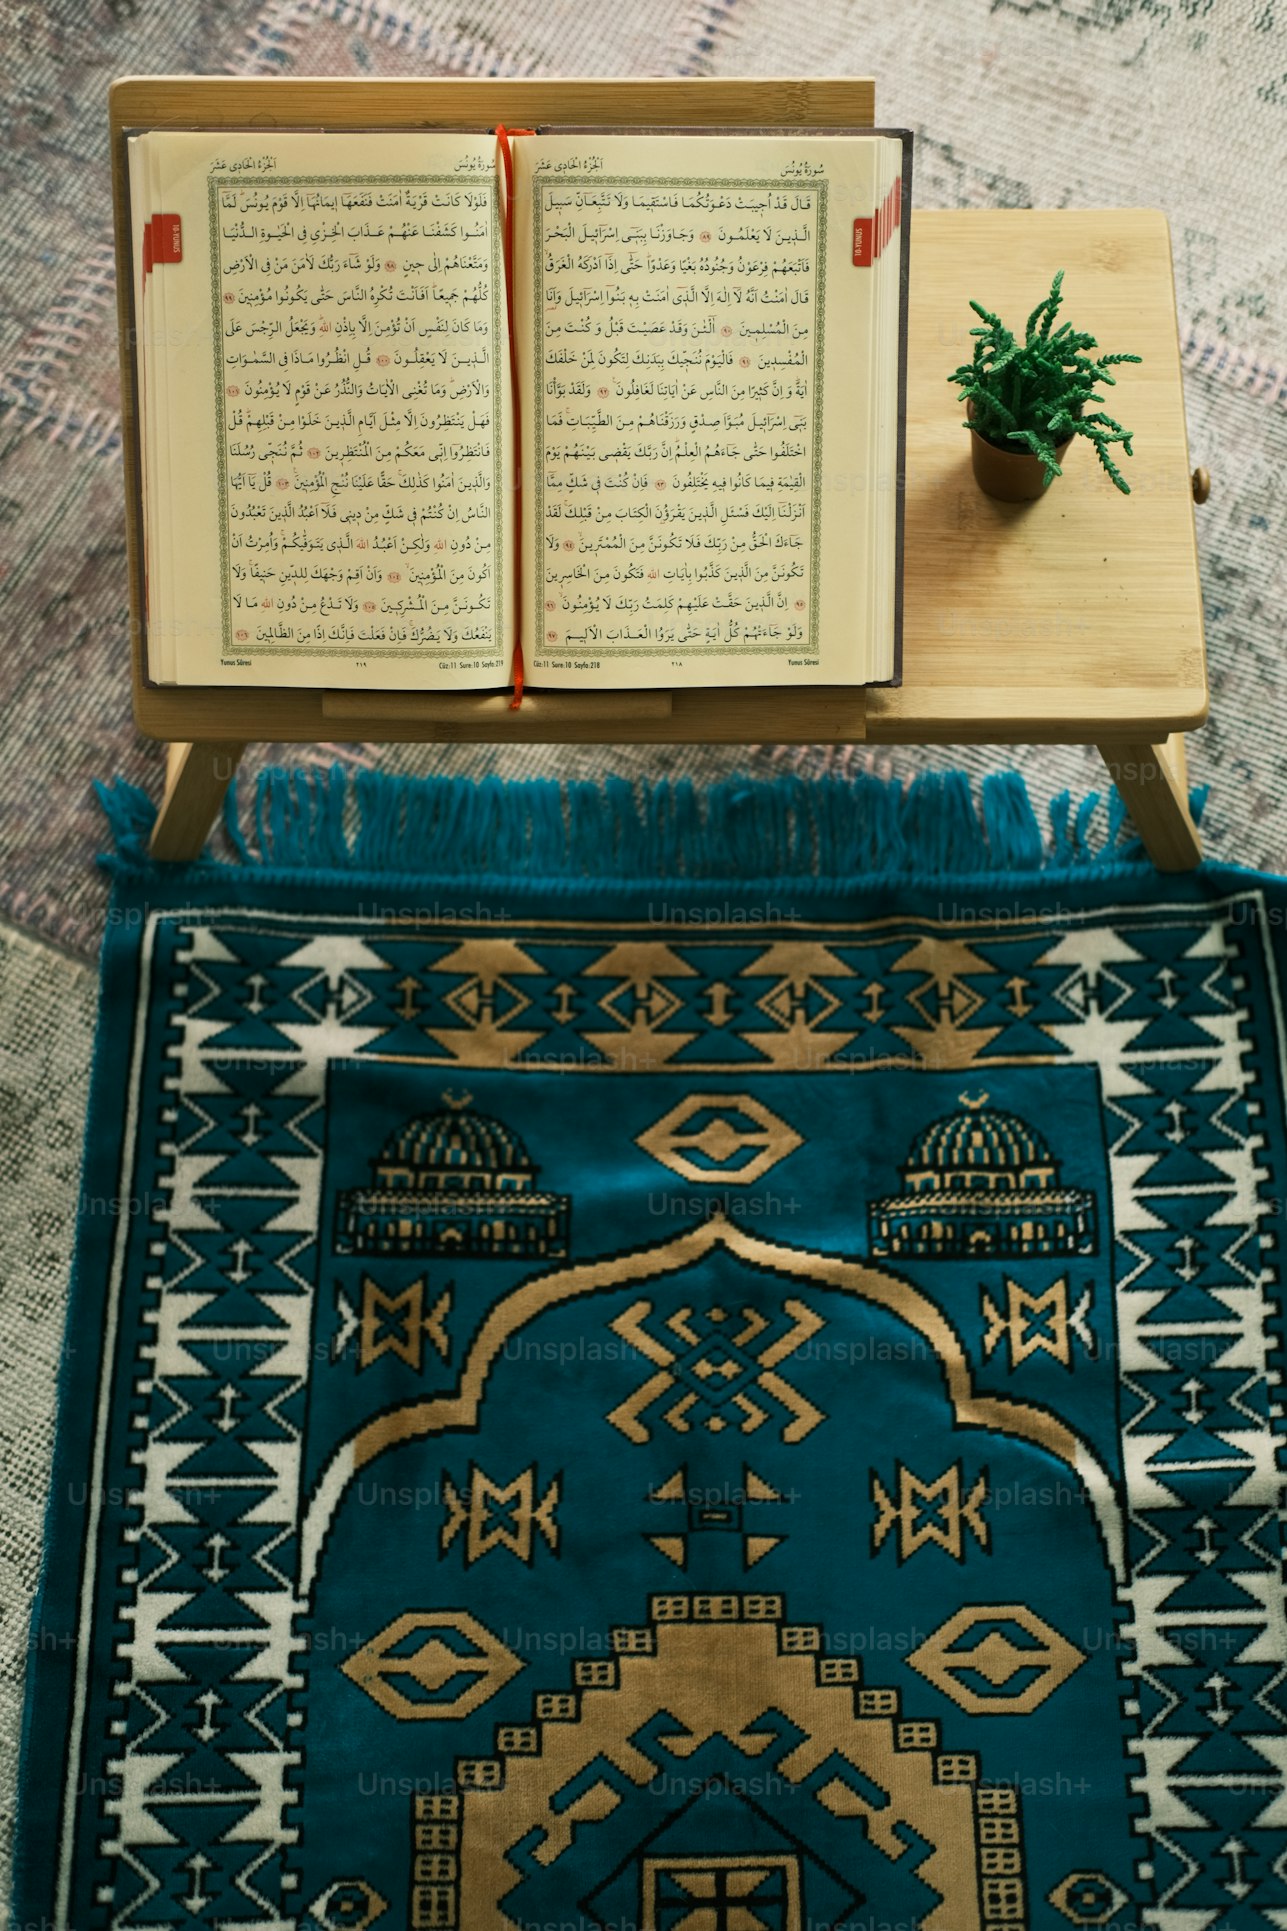 سُورَةُ يُونُسَ
اَلْجُزْءُ الْحَادِى عَشَرَ
قَالَ قَدْ اُجيبَتْ دَعْوَتُكُمَا فَاسْتَقيمَا وَلَا تَتَّبِعَانِّ سَبيلَ
الَّذينَ لَا يَعْلَمُونَ ﴿٨٩﴾ وَجَاوَزْنَا بِبَنى اِسْرَائيلَ الْبَحْرَ
فَاَتْبَعَهُمْ فِرْعَوْنُ وَجُنُودُهُ بَغْيًا وَعَدْوًا حَتّٰى اِذَا اَدْرَكَهُ الْغَرَقُ
قَالَ اٰمَنْتُ اَنَّهُ لَا اِلٰهَ اِلَّا الَّذى اٰمَنَتْ بِه بَنُوا اِسْرَائيلَ وَاَنَا
مِنَ الْمُسْلِمينَ ﴿٩٠﴾ آٰلْـٰٔنَ وَقَدْ عَصَيْتَ قَبْلُ وَكُنْتَ مِنَ
الْمُفْسِدينَ ﴿٩١﴾ فَالْيَوْمَ نُنَجّيكَ بِبَدَنِكَ لِتَكُونَ لِمَنْ خَلْفَكَ
اٰيَةً وَاِنَّ كَثيرًا مِنَ النَّاسِ عَنْ اٰيَاتِنَا لَغَافِلُونَ ﴿٩٢﴾ وَلَقَدْ بَوَّأْنَا
بَنى اِسْرَائيلَ مُبَوَّاَ صِدْقٍ وَرَزَقْنَاهُمْ مِنَ الطَّيِّبَاتِ فَمَا
اخْتَلَفُوا حَتّٰى جَاءَهُمُ الْعِلْمُ اِنَّ رَبَّكَ يَقْضى بَيْنَهُمْ يَوْمَ
الْقِيٰمَةِ فيمَا كَانُوا فيهِ يَخْتَلِفُونَ ﴿٩٣﴾ فَاِنْ كُنْتَ فى شَكٍّ مِمَّا
اَنْزَلْنَا اِلَيْكَ فَسْـَٔلِ الَّذينَ يَقْرَؤُنَ الْكِتَابَ مِنْ قَبْلِكَ لَقَدْ
جَاءَكَ الْحَقُّ مِنْ رَبِّكَ فَلَا تَكُونَنَّ مِنَ الْمُمْتَرينَ ﴿٩٤﴾ وَلَا
تَكُونَنَّ مِنَ الَّذينَ كَذَّبُوا بِاٰيَاتِ اللهِ فَتَكُونَ مِنَ الْخَاسِرينَ
﴿٩٥﴾ اِنَّ الَّذينَ حَقَّتْ عَلَيْهِمْ كَلِمَتُ رَبِّكَ لَا يُؤْمِنُونَ ﴿٩٦﴾
وَلَوْ جَاءَتْهُمْ كُلُّ اٰيَةٍ حَتّٰى يَرَوُا الْعَذَابَ الْاَليمَ ﴿٩٧﴾
Cüz:11 Sure:10 Sayfa:218 ٢١٨ Yunus Sûresi
10-YUNUS
سُورَةُ يُونُسَ
اَلْجُزْءُ الْحَادِى عَشَرَ
فَلَوْلَا كَانَتْ قَرْيَةٌ اٰمَنَتْ فَنَفَعَهَا ايمَانُهَا اِلَّا قَوْمَ يُونُسَ لَمَّا
اٰمَنُوا كَشَفْنَا عَنْهُمْ عَذَابَ الْخِزْىِ فِى الْحَيٰوةِ الدُّنْيَا
وَمَتَّعْنَاهُمْ اِلٰى حينٍ ﴿٩٨﴾ وَلَوْ شَاءَ رَبُّكَ لَاٰمَنَ مَنْ فِى الْاَرْضِ
كُلُّهُمْ جَميعًا اَفَاَنْتَ تُكْرِهُ النَّاسَ حَتّٰى يَكُونُوا مُؤْمِنينَ ﴿٩٩﴾
وَمَا كَانَ لِنَفْسٍ اَنْ تُؤْمِنَ اِلَّا بِاِذْنِ اللهِ وَيَجْعَلُ الرِّجْسَ عَلَى
الَّذينَ لَا يَعْقِلُونَ ﴿١٠٠﴾ قُلِ انْظُرُوا مَاذَا فِى السَّمٰوَاتِ
وَالْاَرْضِ وَمَا تُغْنِى الْاٰيَاتُ وَالنُّذُرُ عَنْ قَوْمٍ لَا يُؤْمِنُونَ ﴿١٠١﴾
فَهَلْ يَنْتَظِرُونَ اِلَّا مِثْلَ اَيَّامِ الَّذينَ خَلَوْا مِنْ قَبْلِهِمْ قُلْ
فَانْتَظِرُوا اِنّى مَعَكُمْ مِنَ الْمُنْتَظِرينَ ﴿١٠٢﴾ ثُمَّ نُنَجّى رُسُلَنَا
وَالَّذينَ اٰمَنُوا كَذٰلِكَ حَقًّا عَلَيْنَا نُنْجِ الْمُؤْمِنينَ ﴿١٠٣﴾ قُلْ يَا اَيُّهَا
النَّاسُ اِنْ كُنْتُمْ فى شَكٍّ مِنْ دينى فَلَا اَعْبُدُ الَّذينَ تَعْبُدُونَ
مِنْ دُونِ اللهِ وَلٰكِنْ اَعْبُدُ اللهَ الَّذى يَتَوَفّٰيكُمْ وَاُمِرْتُ اَنْ
اَكُونَ مِنَ الْمُؤْمِنينَ ﴿١٠٤﴾ وَاَنْ اَقِمْ وَجْهَكَ لِلدّينِ حَنيفًا وَلَا
تَكُونَنَّ مِنَ الْمُشْرِكينَ ﴿١٠٥﴾ وَلَا تَدْعُ مِنْ دُونِ اللهِ مَا لَا
يَنْفَعُكَ وَلَا يَضُرُّكَ فَاِنْ فَعَلْتَ فَاِنَّكَ اِذًا مِنَ الظَّالِمينَ ﴿١٠٦﴾
Yunus Sûresi ٢١٩ Cüz:11 Sure:10 Sayfa:219
10-YUNUS
Unsplash+